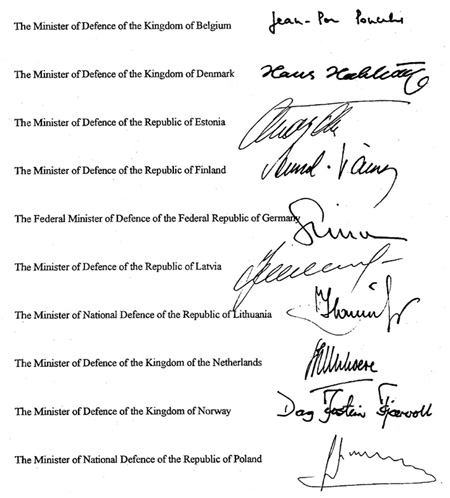 The Minister of Defence of the Kingdom of Belgium
The Minister of Defence of the Kingdom of Denmark Hans
The Minister of Defence of the Republic of Estonia
The Minister of Defence of the Republic of Finland
The Federal Minister of Defence of the Federal Republic of Germany
The Minister of Defence of the Republic of Latvia
The Minister of National Defence of the Republic of Lithuania
The Minister of Defence of the Kingdom of the Netherlands
The Minister of Defence of the Kingdom of Norway Dag Jostein Fjærvoll
The Minister of National Defence of the Republic of Poland